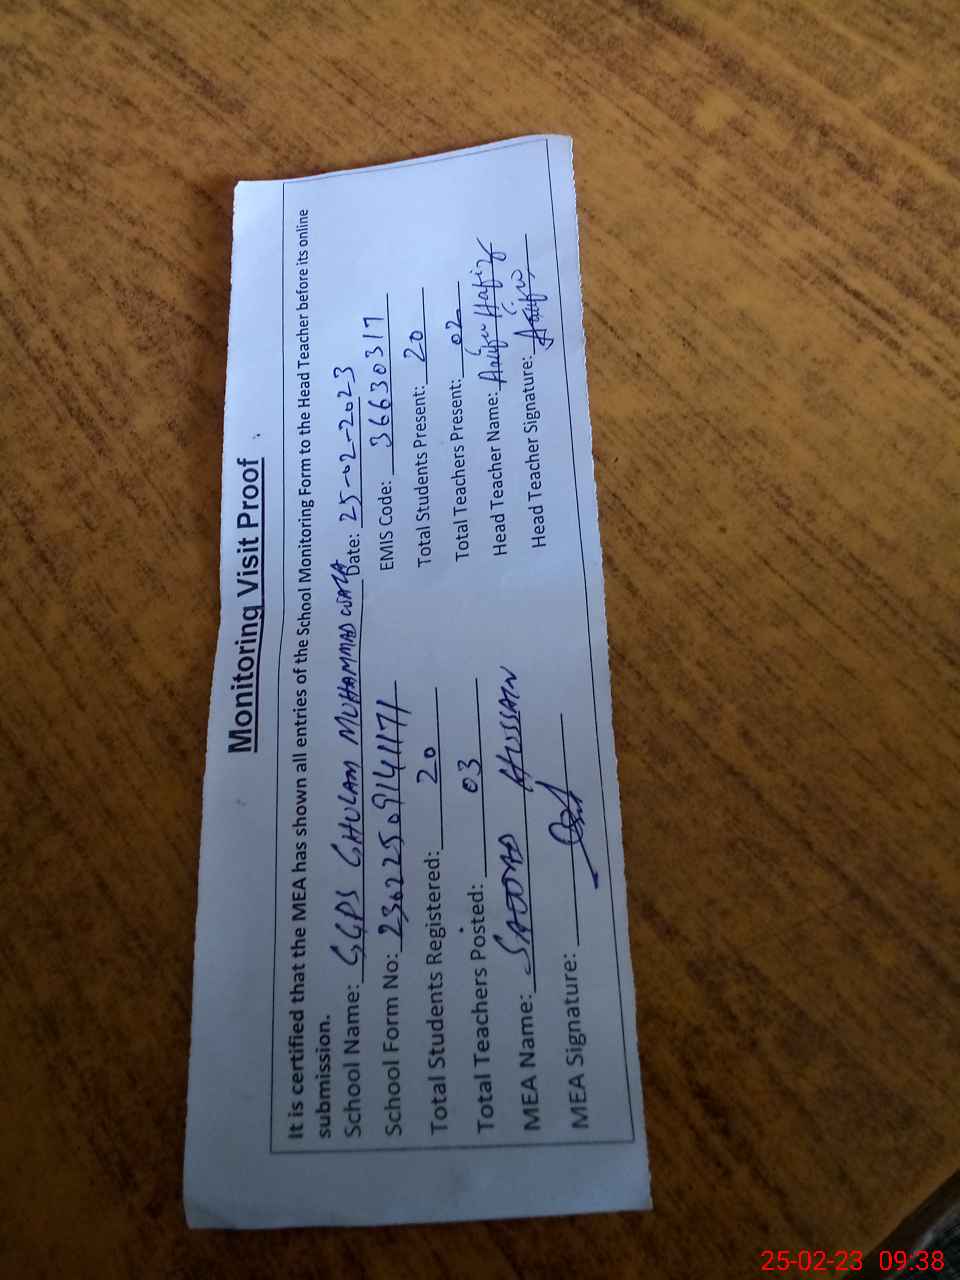 Monitoring Visit Proof
It is certified that the MEA has shown all entries of the School Monitoring Form to the Head Teacher before its online
submission.
School Name: GGPS GHULAM MUHAMMAD WALA Date: 25-02-2023
School Form No: 23022509141171 EMIS Code: 36630317
Total Students Registered: 20 Total Students Present: 20
Total Teachers Posted: 03 Total Teachers Present: 02
MEA Name: HUSSAIN Head Teacher Name: Hafiz
MEA Signature: Head Teacher Signature:
25-02-23 09:38